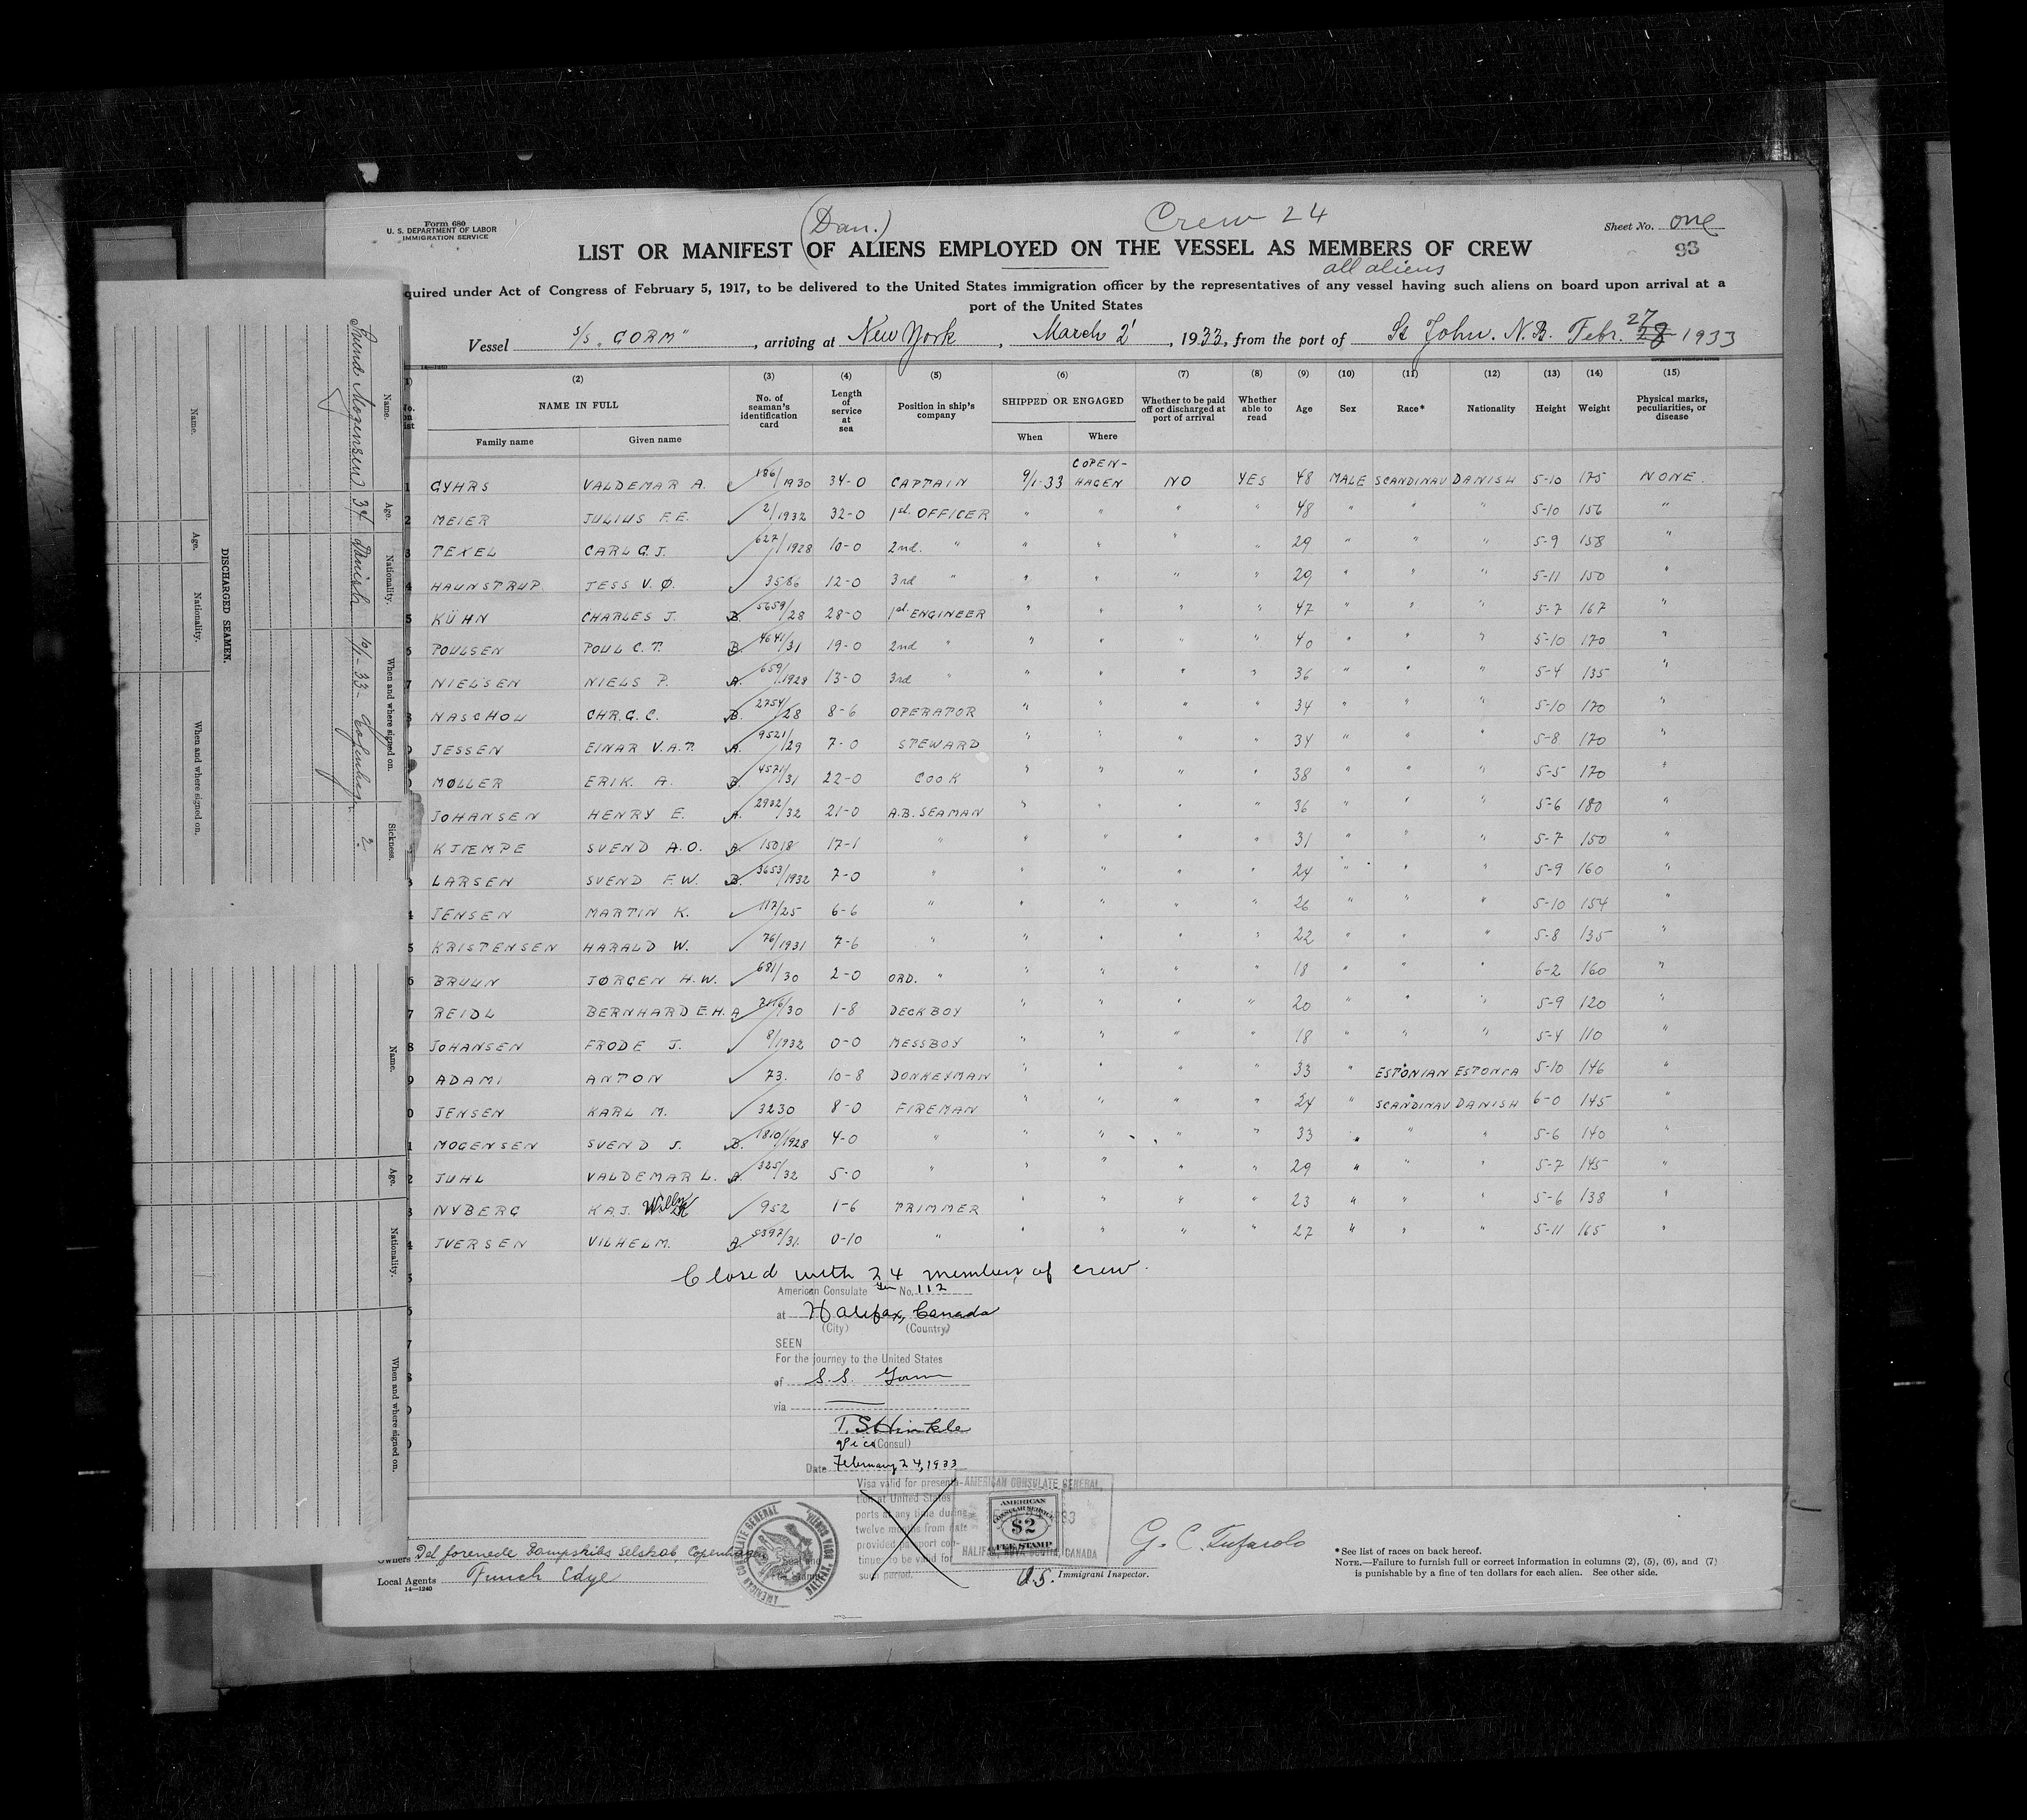 Form 680
U. S. DEPARTMENT OF LABOR
IMMIGRATION SERVICE
(Dan.)
Crew 24
Sheet No. one
93
LIST OR MANIFEST OF ALIENS EMPLOYED ON THE VESSEL AS MEMBERS OF CREW
all aliens
quired under Act of Congress of February 5, 1917, to be delivered to the United States immigration officer by the representatives of any vessel having such aliens on board upon arrival at a
port of the United States
Vessel S/S „GORM“, arriving at New York, March 2, 1933, from the port of St John. N.B. Febr. 27 28 1933
14—1240
(2) (3) (4) (5) (6) (7) (8) (9) (10) (11) (12) (13) (14) (15)
NAME IN FULL No. of seaman's identification card Length of service at sea Position in ship's company SHIPPED OR ENGAGED Whether to be paid off or discharged at port of arrival Whether able to read Age Sex Race* Nationality Height Weight Physical marks, peculiarities, or disease
Family name Given name When Where
1 GYHRS VALDEMAR A. 186/1930 34-0 CAPTAIN 9/1-33 COPEN-HAGEN NO YES 48 MALE SCANDINAV DANISH 5-10 175 NONE.
2 MEIER JULIUS F.E. 2/1932 32-0 1st. OFFICER " " " " 48 " " " 5-10 156 "
3 TEXEL CARL G.J. 627/1928 10-0 2nd. " " " " " 29 " " " 5-9 158 "
4 HAUNSTRUP JESS V.Ø. 3586 12-0 3rd " " " " " 29 " " " 5-11 150 "
5 KÜHN CHARLES J. B. 5659/28 28-0 1st. ENGINEER " " " " 47 " " " 5-7 167 "
6 POULSEN POUL C.T. B. 4641/31 19-0 2nd " " " " " 40 " " " 5-10 170 "
7 NIELSEN NIELS P. A. 659/1928 13-0 3rd " " " " " 36 " " " 5-4 135 "
8 NASCHOU CHR.G.C. B. 2754/28 8-6 OPERATOR " " " " 34 " " " 5-10 170 "
JESSEN EINAR V.A.T. A. 9521/29 7-0 STEWARD " " " " 34 " " " 5-8 170 "
MØLLER ERIK. A. B. 4571/31 22-0 COOK " " " " 38 " " " 5-5 170 "
JOHANSEN HENRY E. A. 2932/32 21-0 A.B. SEAMAN " " " " 36 " " " 5-6 180 "
KJÆMPE SVEND A.O. A. 15018 17-1 " " " " " 31 " " " 5-7 150 "
3 LARSEN SVEND F.W. B. 3653/1932 7-0 " " " " " 24 " " " 5-9 160 "
4 JENSEN MARTIN K. 117/25 6-6 " " " " " 26 " " " 5-10 154 "
5 KRISTENSEN HARALD W. 76/1931 7-6 " " " " " 22 " " " 5-8 135 "
6 BRUUN JØRGEN H.W. 681/30 2-0 ORD. " " " " " 18 " " " 6-2 160 "
7 REIDL BERNHARD E.H. A /30 1-8 DECKBOY " " " " 20 " " " 5-9 120 "
8 JOHANSEN FRODE J. 8/1932 0-0 MESSBOY " " " " 18 " " " 5-4 110 "
9 ADAMI ANTON 73. 10-8 DONKEYMAN " " " " 33 " ESTONIAN ESTONIA 5-10 146 "
0 JENSEN KARL M. 3230 8-0 FIREMAN " " " " 24 " SCANDINAV DANISH 6-0 145 "
1 MOGENSEN SVEND J. B. 1810/1928 4-0 " " " " " 33 " " " 5-6 140 "
2 JUHL VALDEMAR L. A. 325/32 5-0 " " " " " 29 " " " 5-7 145 "
3 NYBERG KAJ. Willy 952 1-6 TRIMMER " " " " 23 " " " 5-6 138 "
4 IVERSEN VILHELM. A. 5397/31. 0-10 " " " " " 27 " " " 5-11 165 "
Closed with 24 members of crew.
American Consulate Gen No. 112
at Halifax, Canada
(City) (Country)
SEEN
For the journey to the United States
of S.S. Gorm
via
T. S. Hinkle
Vice (Consul)
Date February 24, 1933
Visa valid for presenta-
tion at United States
ports at any time during
twelve months from date
provided passport con-
tinues to be valid for
such period.
AMERICAN CONSULATE GENERAL
HALIFAX, NOVA SCOTIA, CANADA
AMERICAN
CONSULAR SERVICE
$2
FEE STAMP
AMERICAN CONSULATE GENERAL
Owners Det forenede Dampskibs Selskab, Copenhagen
Local Agents Funch Edye
14—1240
U.S. Immigrant Inspector.
*See list of races on back hereof.
NOTE.—Failure to furnish full or correct information in columns (2), (5), (6), and (7)
is punishable by a fine of ten dollars for each alien. See other side.
DISCHARGED SEAMEN.
Name. Age. Nationality. When and where signed on. Sickness.
Svend Mogensen 34 Danish 10/1-33 Copenhagen ?
Name. Age. Nationality. When and where signed on.
Name. Age. Nationality. When and where signed on.